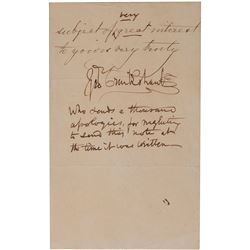 very
subject of great interest
to yours very truly
Geo Cruikshank
Who sends a thousand
apologies, for neglecting
to send this note at
the time it was written